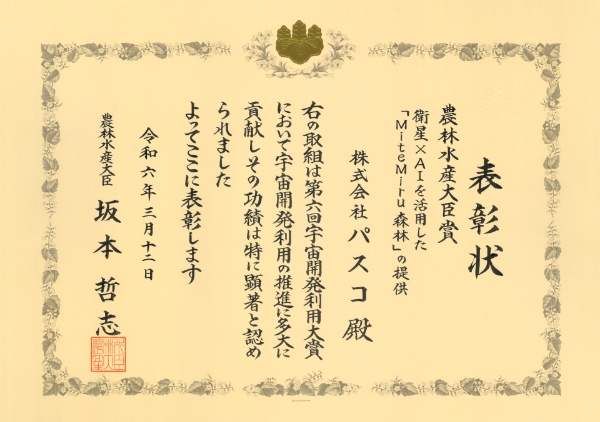 表彰状
農林水産大臣賞
衛星×AIを活用した
「MiteMiru森林」の提供
株式会社 パスコ 殿
右の取組は第六回宇宙開発利用大賞
において宇宙開発利用の推進に多大に
貢献しその功績は特に顕著と認め
られました
よってここに表彰します
令和六年三月十二日
農林水産大臣 坂本哲志